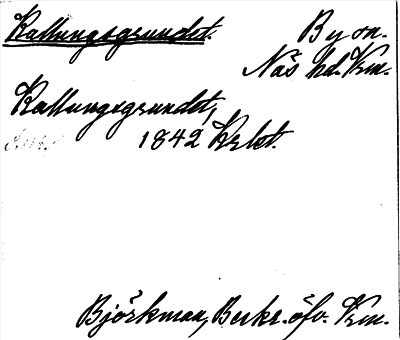 Kallungsgrundet. By sn.
Näs hd. Vrm.
Kallungsgrundet,
1842 Krbt.
Björkman, Beskr. öfv. Vrm.